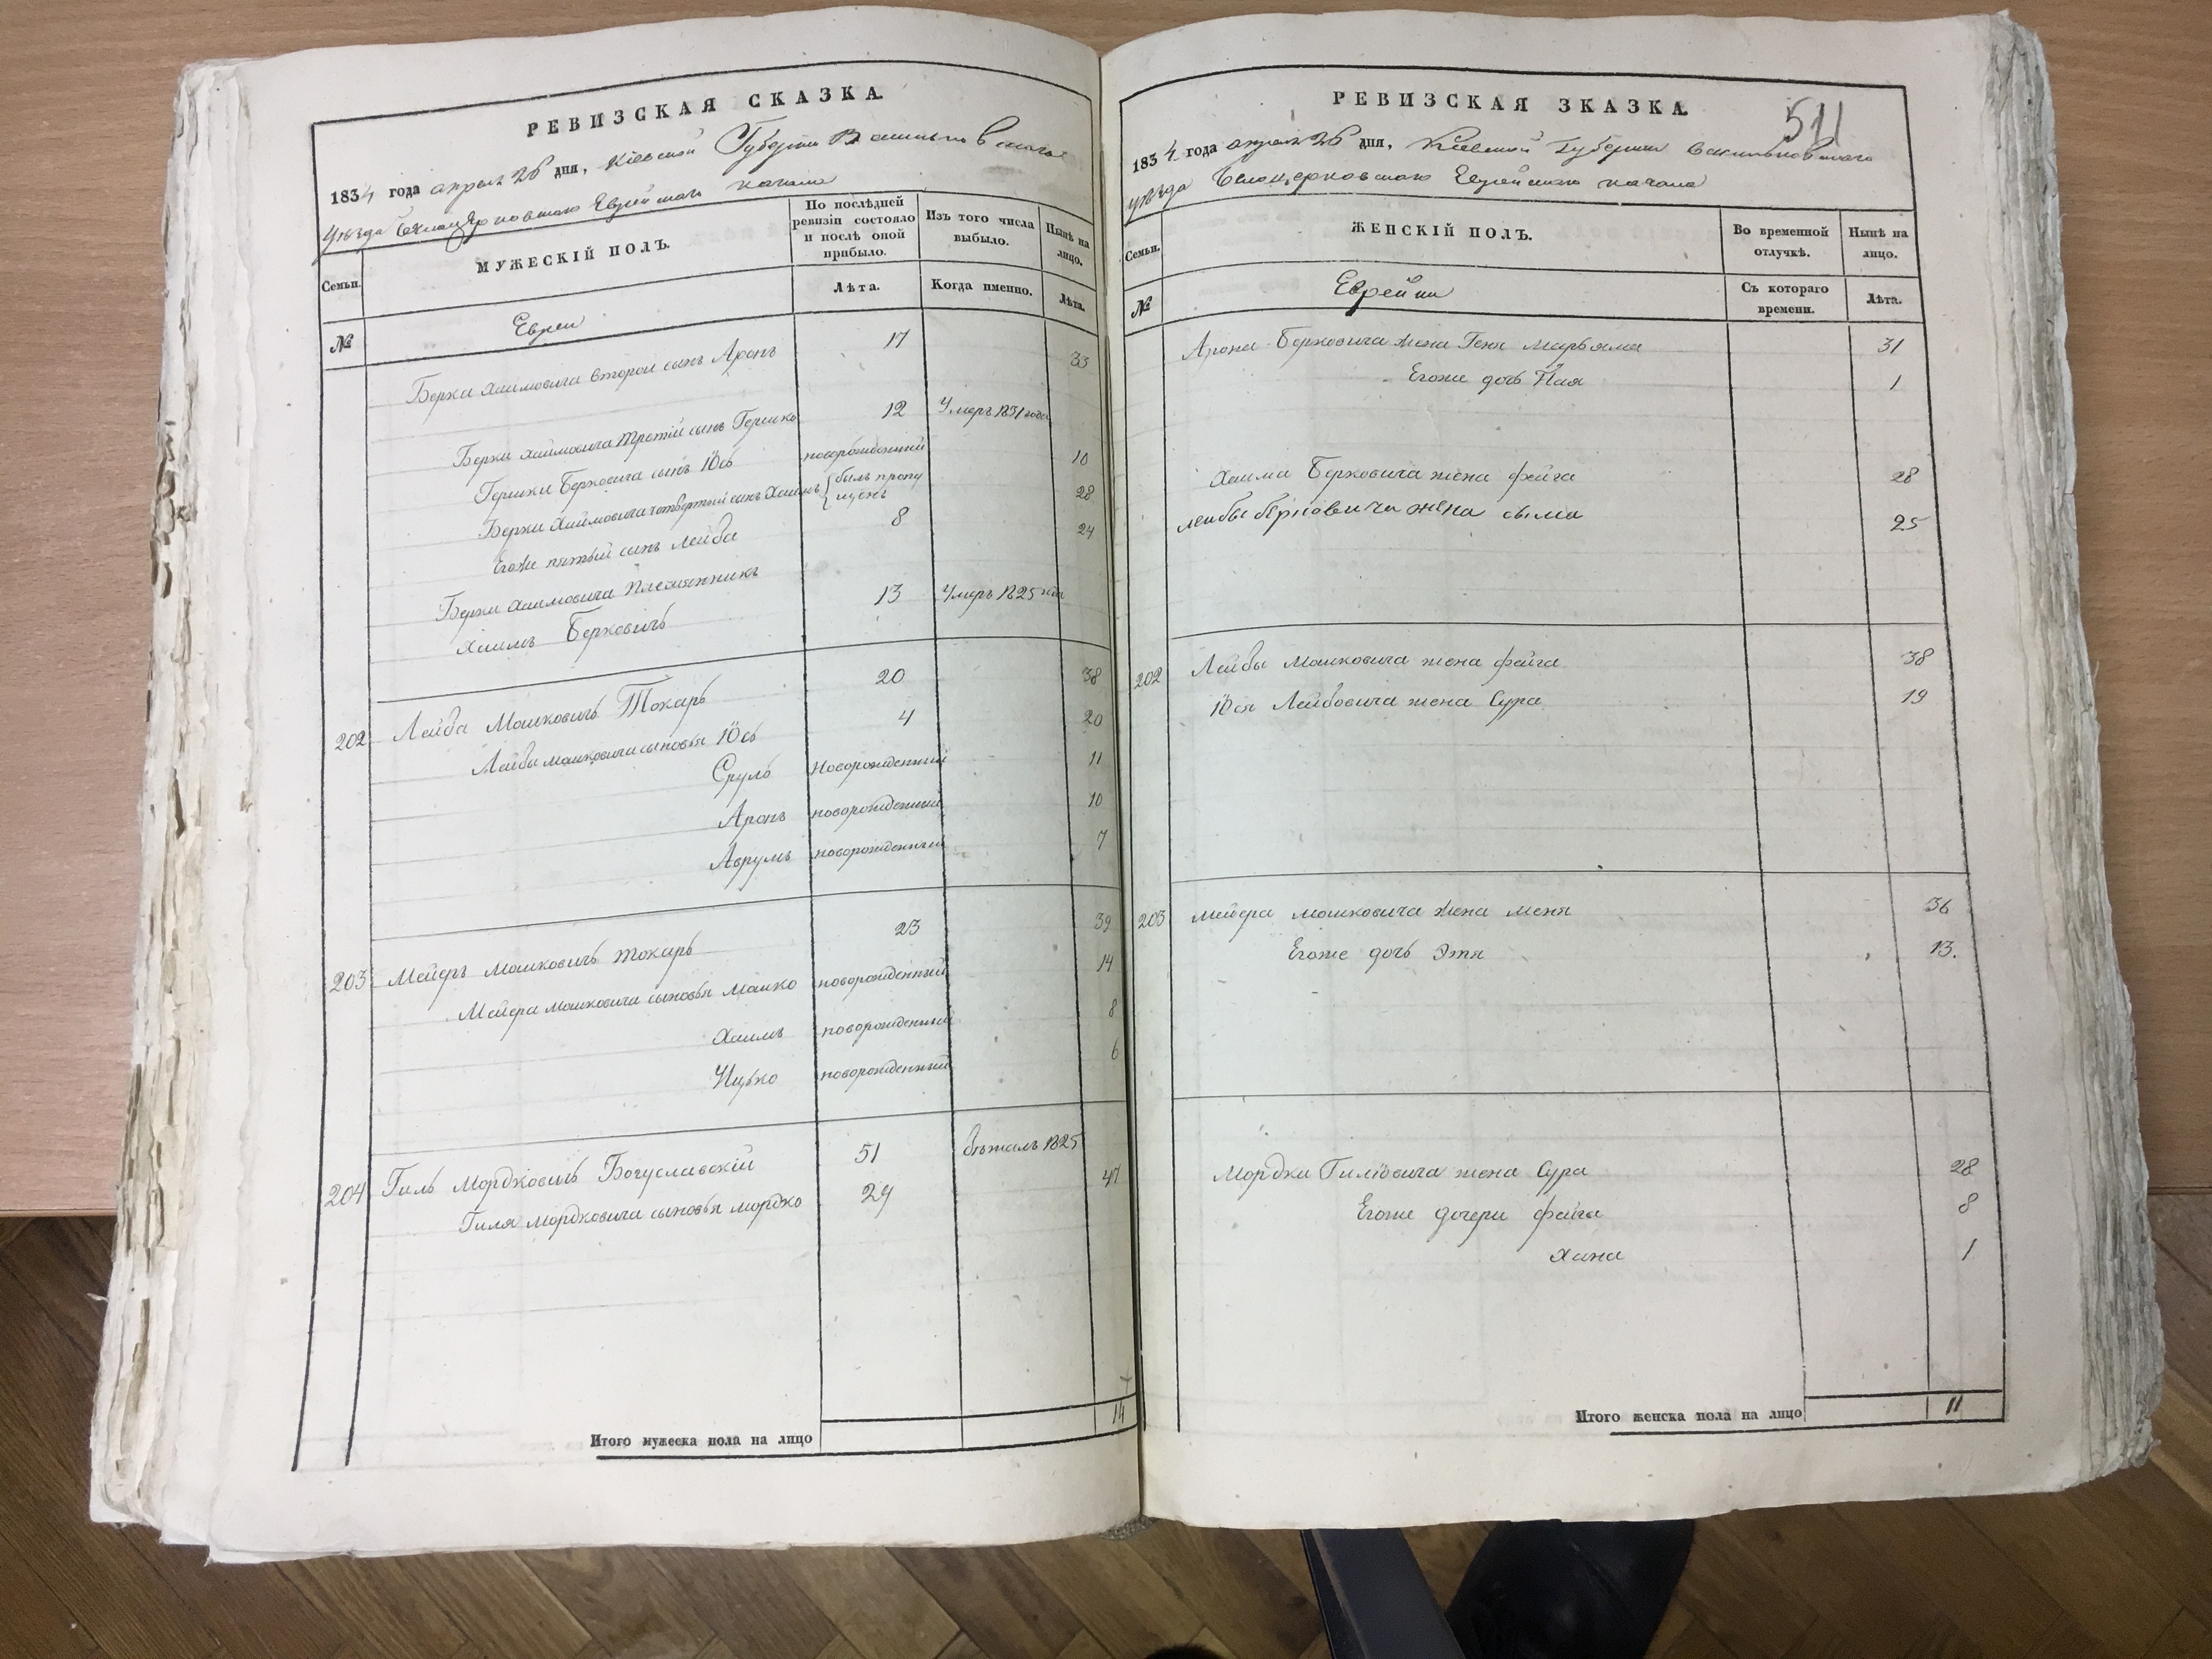 РЕВИЗСКАЯ СКАЗКА.
1834 года апреля 26 дня, Кіевской Губерніи Васильковскаго
уѣзда Белоцерковскаго Еврейскаго кагала
Семьи.
МУЖЕСКІЙ ПОЛЪ.
По послѣдней
ревизіи состояло
и послѣ оной
прибыло.
Изъ того числа
выбыло.
Нынѣ на
лицо.
№
Лѣта.
Когда именно.
Лѣта.
Евреи
Берки Хаимовича второй сынъ Аронъ 17 33
Берки Хаимовича третій сынъ Гершко 12 Умеръ 1831 года
Гершки Берковича сынъ Іось новорожденний 10
Берки Хаимовича четвертый сынъ Хаимъ былъ пропу
щенъ 28
Егоже пятый сынъ Лейба 8 24
Берки Хаимовича племянникъ
Хаимъ Берковичъ 13 Умеръ 1825
202 Лейба Мошковичъ Токарь 20 38
Лейбы Мошковича сыновья Іось 4 20
Сруль Новорожденний 11
Аронъ новорожденний 10
Аврумъ новорожденний 7
203 Мейеръ Мошковичъ Токарь 23 39
Мейера Мошковича сыновья Мошко новорожденний 14
Хаимъ новорожденний 8
Ицько новорожденний 6
204 Гиль Мордковичъ Богуславскій 51 бѣжалъ 1825
Гиля Мордковича сыновья Мордко 29 47
Итого мужеска пола на лицо 14
РЕВИЗСКАЯ ЗКАЗКА.
511
1834 года апреля 26 дня, Кіевской Губерніи Васильковскаго
уѣзда Белоцерковскаго Еврейскаго кагала
Семьи.
ЖЕНСКІЙ ПОЛЪ.
Во временной
отлучкѣ.
Нынѣ на
лицо.
№
Съ котораго
времени.
Лѣта.
Еврейки
Арона Берковича жена Геня Марьяма 31
Егоже дочь 1
Хаима Берковича жена Фейга 28
Лейбы Берковича жена Сыма 25
202 Лейбы Мошковича жена Фейга 38
Іося Лейбовича жена Сура 19
203 Мейера Мошковича жена Меня 36
Егоже дочь Этя 13.
Мордки Гиліовича жена Сура 28
Егоже дочери Фейга 8
Хана 1
Итого женска пола на лицо 11